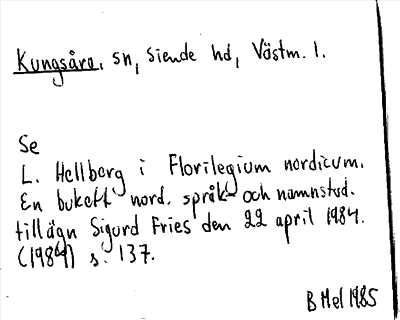 Kungsåra, sn, Siende hd, Västm. l.
Se
L. Hellberg i Florilegium nordicum.
En bukett nord. språk- och namnstud.
tillägn Sigurd Fries den 22 april 1984.
(1984) s. 137.
B Mel 1985